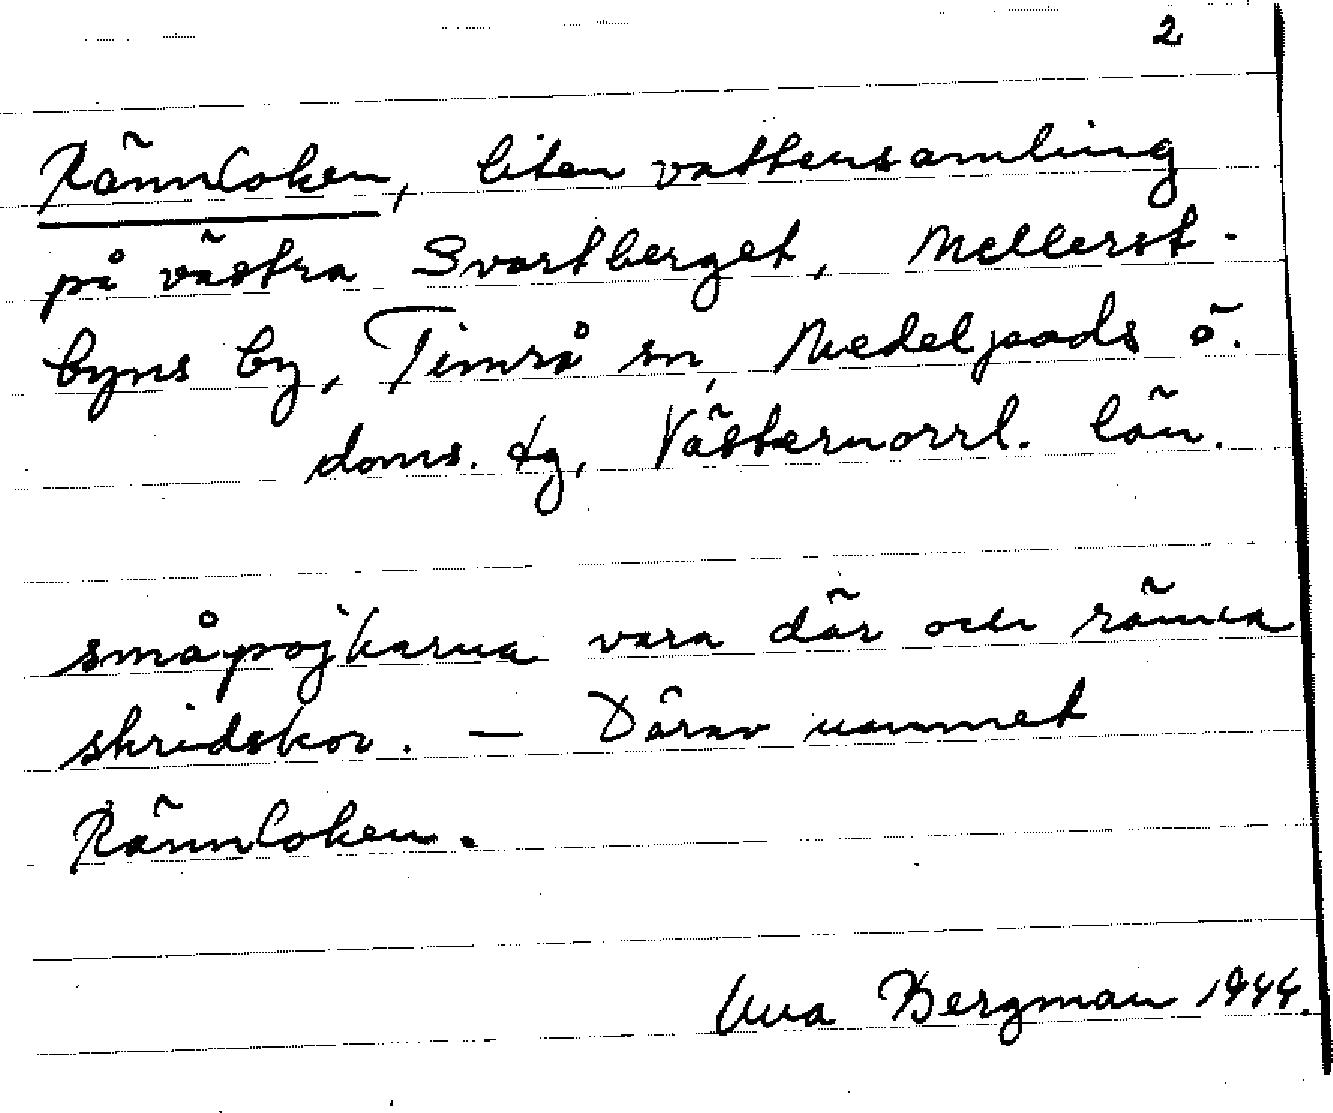 2
Rännloken, liten vattensamling
på västra Svartberget, Mellerst-
byns by, Timrå sn, Medelpads ö.
doms. tg, Västernorrl. län.
småpojkarna vara där och ränna
skridskor. — Därav namnet
Rännloken.
Bergman 1944.